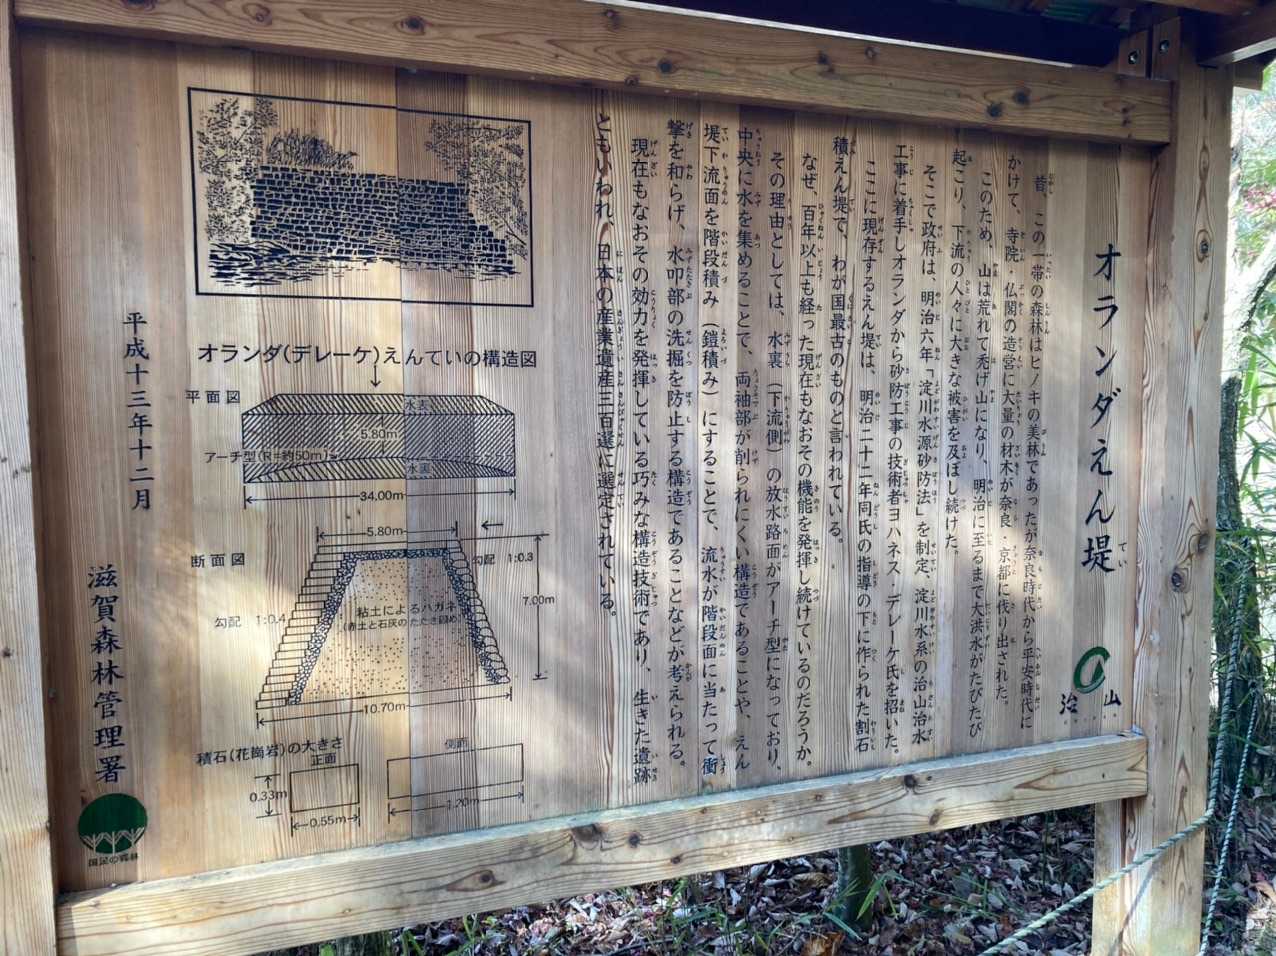 オランダえん堤
治山
昔、この一帯の森林はヒノキの美林であったが奈良時代から平安時代に
かけて、寺院・仏閣の造営に大量の材木が奈良・京都に伐り出された。
このため、山は荒れて禿げ山になり、明治に至るまで大洪水がたびたび
起こり、下流の人々に大きな被害を及ぼし続けた。
そこで政府は、明治六年「淀川水源砂防法」を制定、淀川水系の治山治水
工事に着手しオランダから砂防工事の技術者ヨハネス・デレーケ氏を招いた。
ここに現存するえん堤は、明治二十二年同氏の指導の下に作られた割石
積えん堤で、わが国最古のものと言われている。
なぜ、百年以上も経った現在もなおその機能を発揮し続けているのだろうか。
その理由としては、水裏(下流側)の放水路面がアーチ型になっており、
中央に水を集めることで、両袖部が削られにくい構造であることや、えん
堤下流面を階段積み(鎧積み)にすることで、流水が階段面に当たって衝
撃を和らげ、水叩部の洗掘を防止する構造であることなどが考えられる。
現在もなおその効力を発揮している巧みな構造技術であり、生きた遺跡
ともいわれ、日本の産業遺産三百選に選定されている。
オランダ(デレーケ)えんていの構造図
平面図
水表
5.80m
アーチ型(R=約50m)
水裏
34.00m
断面図
5.80m
勾配 1:0.3
7.00m
勾配 1:0.4
粘土によるハガネ
(赤土と石灰のたたき固め)
10.70m
積石(花崗岩)の大きさ
正面
側面
0.33m
0.55m
1.20m
平成十三年十二月
滋賀森林管理署
国民の森林